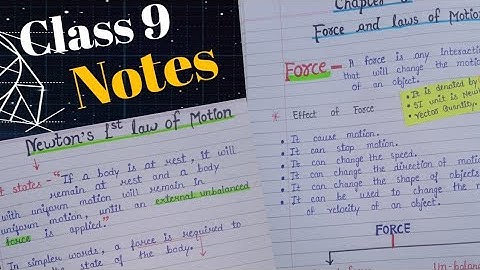 Class 9
Notes
Newton's 1st law of Motion
states - "If a body is at rest, it will
remain at rest and a body
with uniform motion will remain in
uniform motion, untill an external unbalanced
force is applied."
In simpler words, a force is required to
the state of the body.
Chapter
Force and laws of Motion
Force - A force is any interaction
that will change the motion
of an object.
• It is denoted by
• SI unit is Newton
• Vector Quantity.
* Effect of Force
• It cause motion.
• It can stop motion.
• It can change the speed.
• It can change the direction of motion
• It can change the shape of objects
• It can be used to change the
of velocity of an object.
FORCE